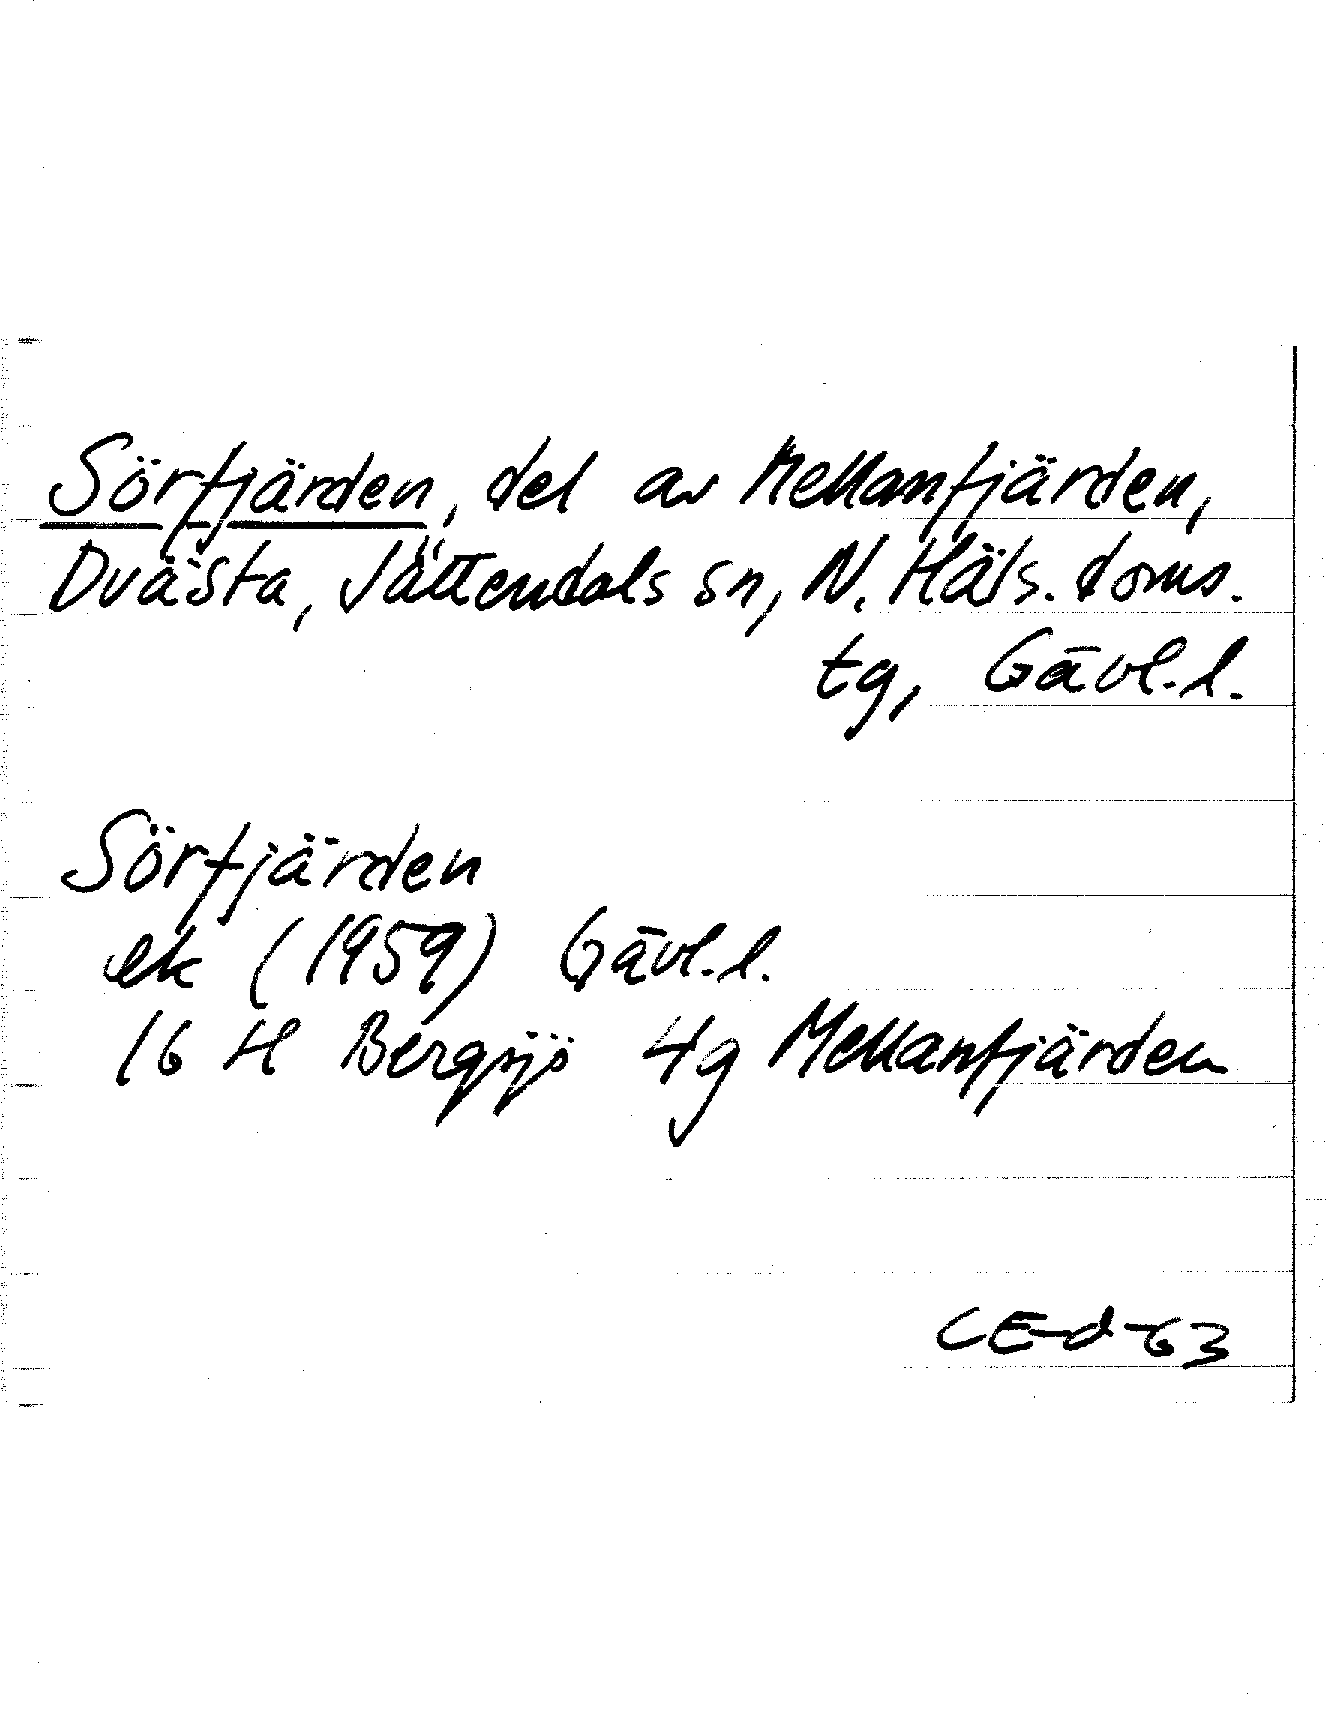 Sörfjärden, del av Mellanfjärden,
Dvästa, Jättendals sn, N. Häls. doms.
tg, Gävl. l.
Sörfjärden
ek (1959) Gävl. l.
16 H Bergsjö 4g Mellanfjärden
CE-d-63